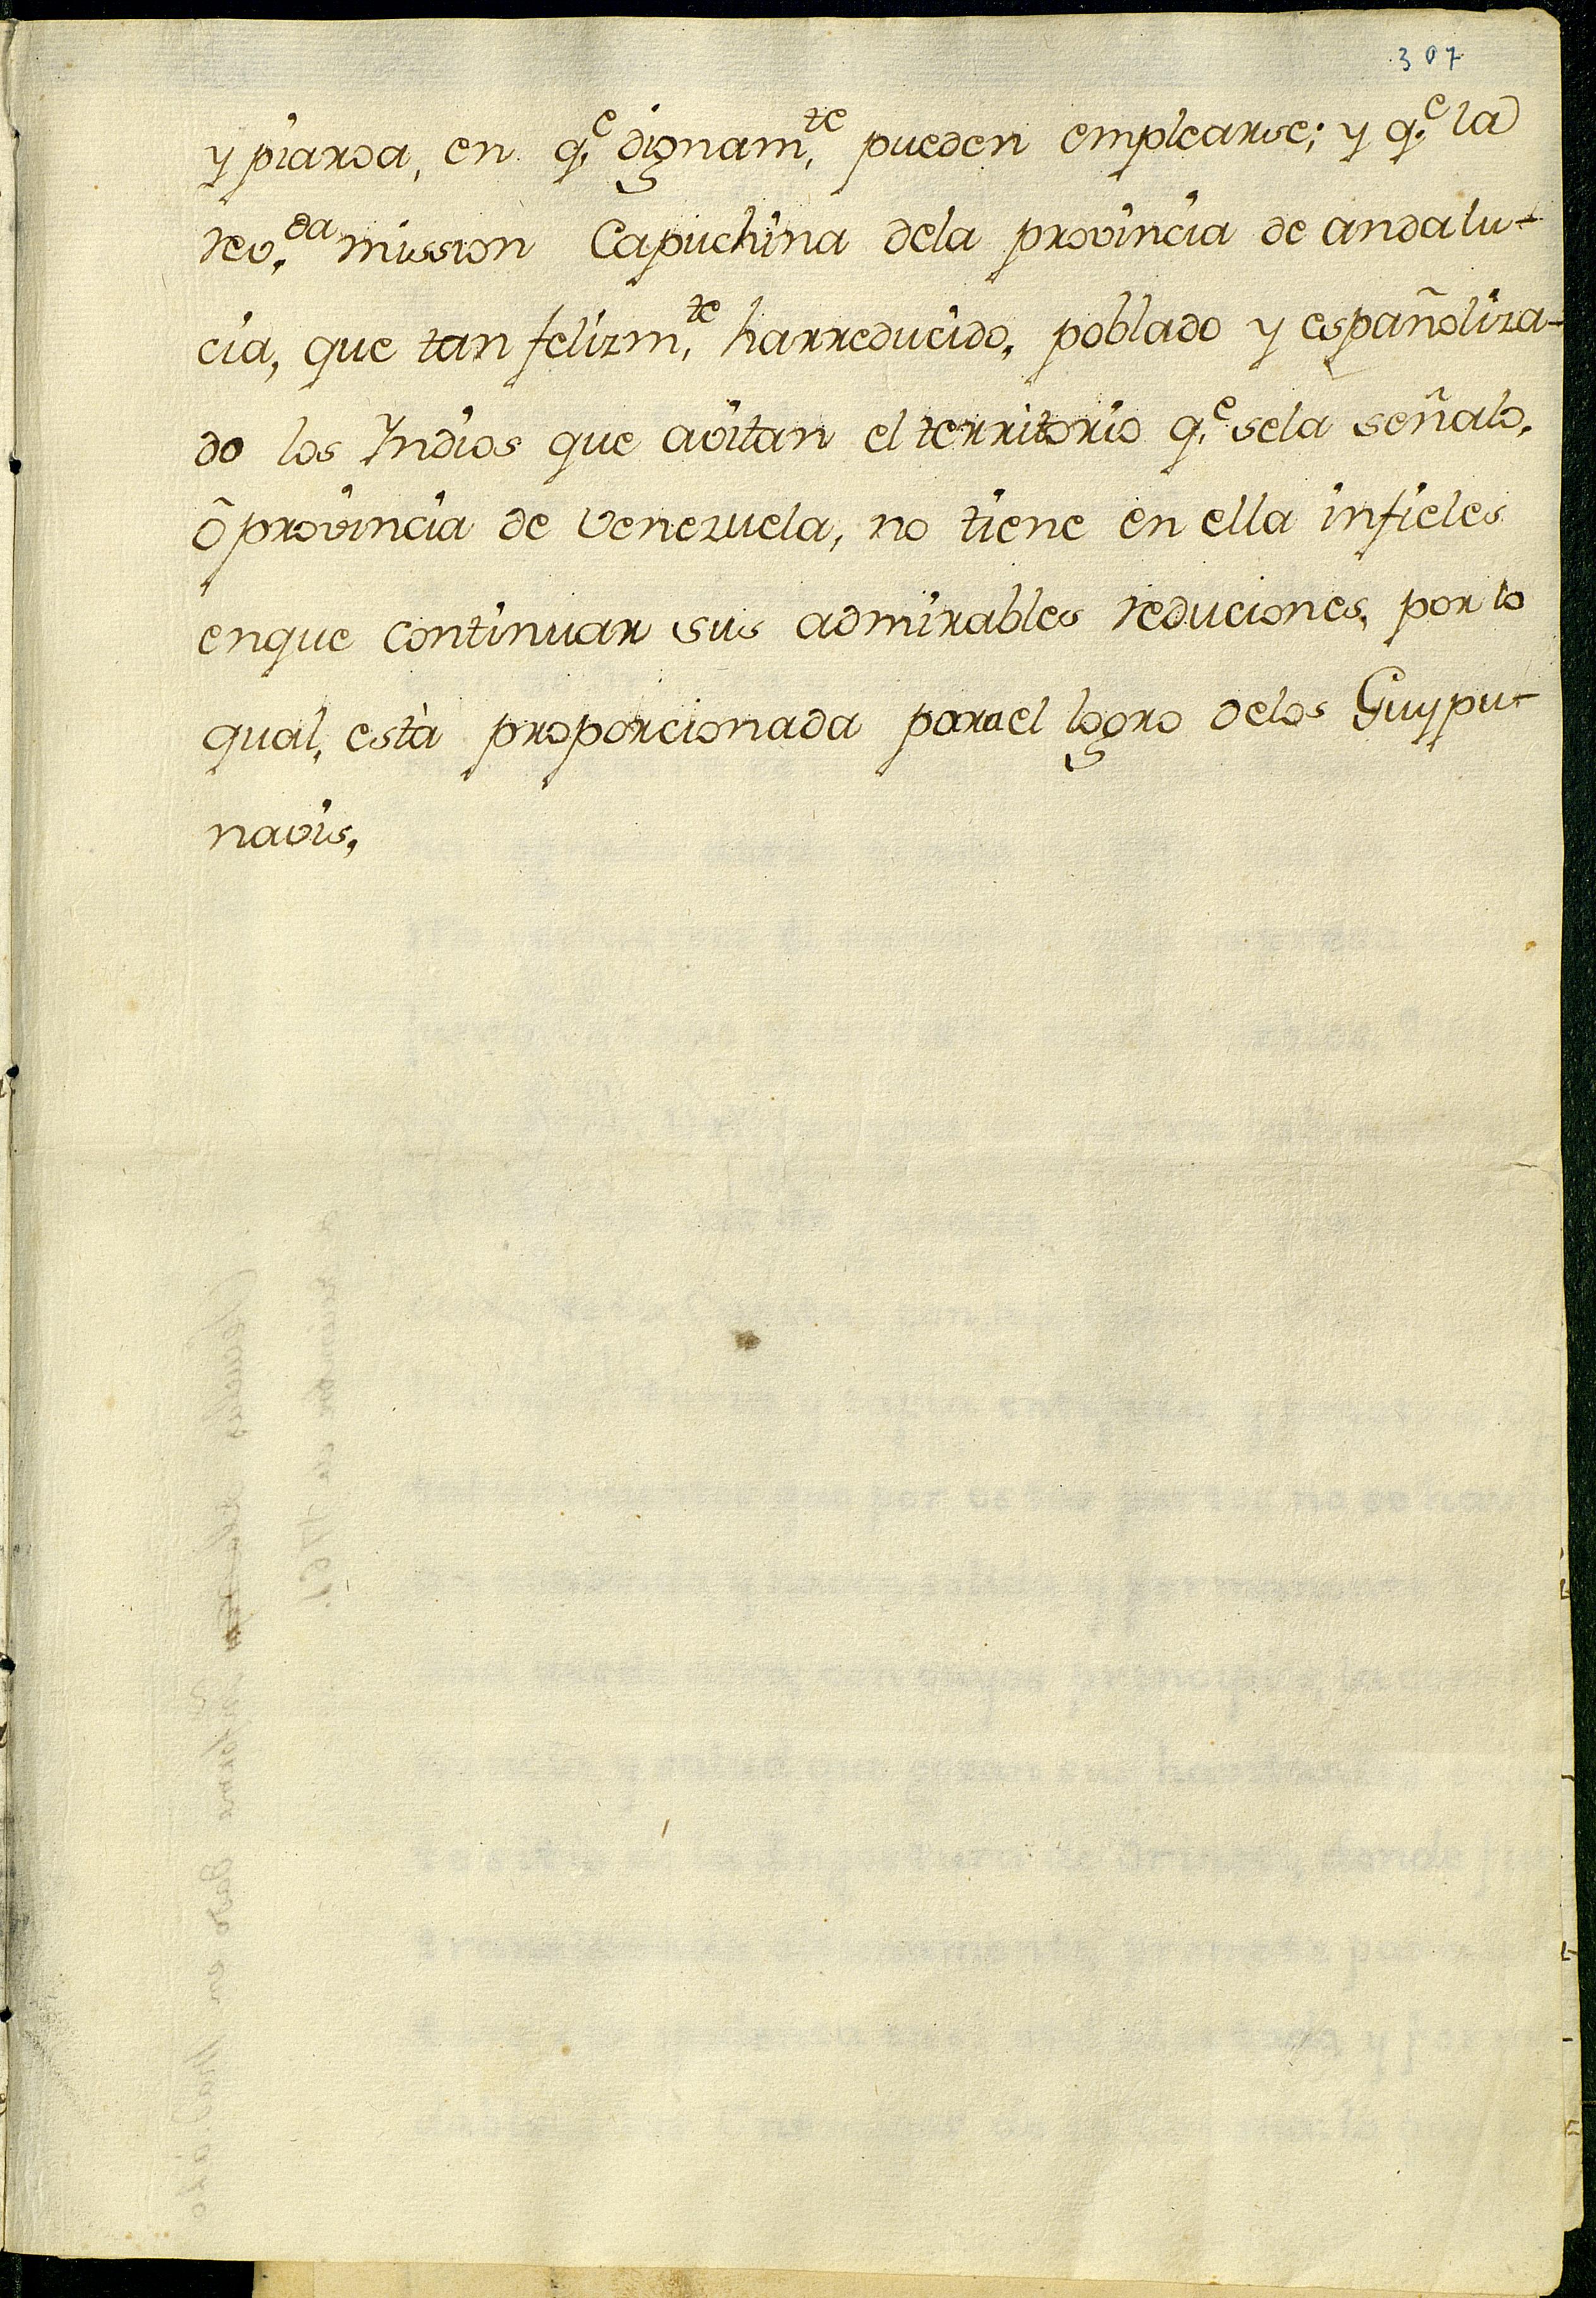 307
y piaroa, en q.e dignam.te pueden emplearse; y q.e la
rev.da mission Capuchina dela provincia de andalu-
cia, que tan felizm.te harreducido, poblado y españoliza-
do los Indios que avitan el territorio q.e sela señalo,
ô provincia de venezuela, no tiene en ella infieles
enque continuar sus admirables reduciones, por lo
qual, està proporcionada parael logro delos Guypu-
navis,